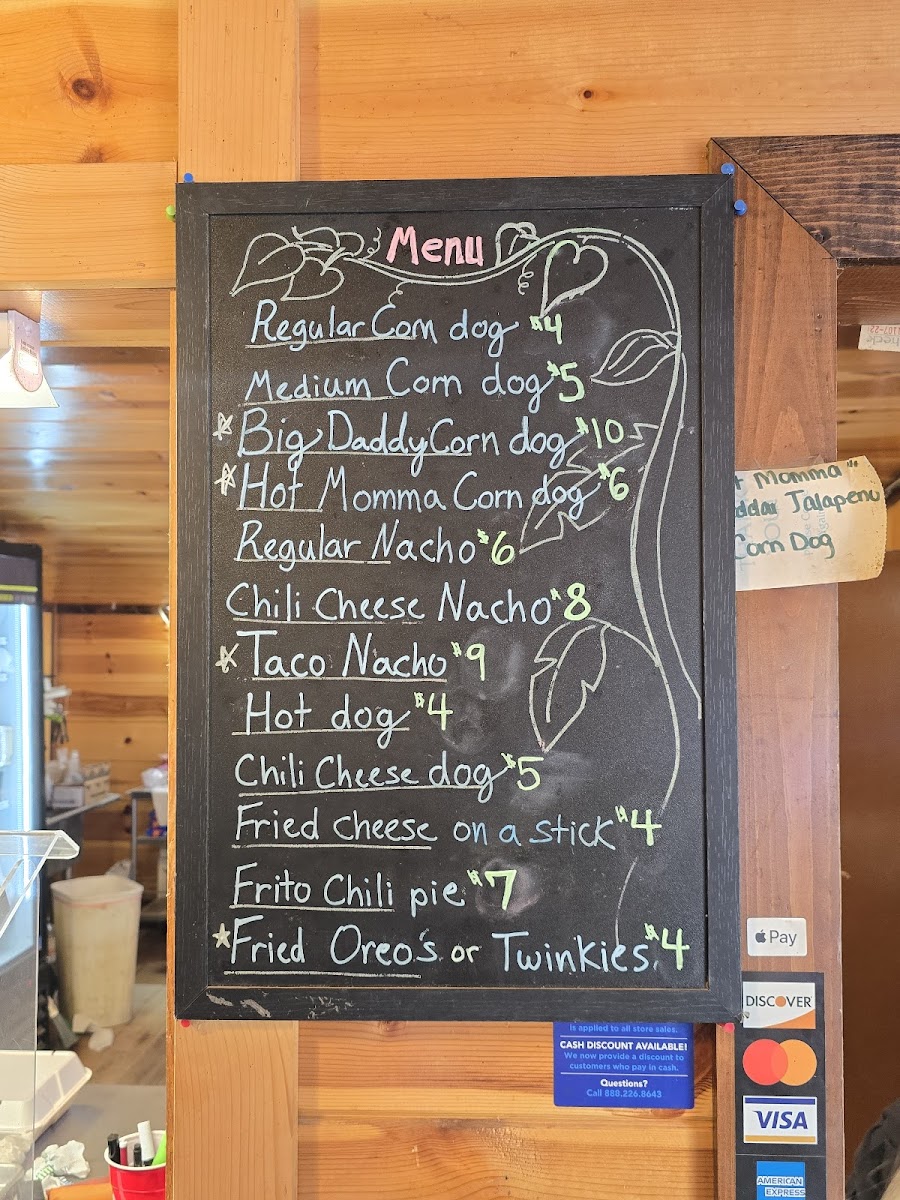 Menu
Regular Corn dog $4
Medium Corn dog $5
Big Daddy Corn dog $10
Hot Momma Corn dog $6
Regular Nacho $6
Chili Cheese Nacho $8
Taco Nacho $9
Hot dog $4
Chili Cheese dog $5
Fried cheese on a stick $4
Frito Chili pie $7
Fried Oreo's or Twinkies $4
Momma"
Jalapeno
Corn Dog
Pay
DISCOVER
VISA
AMERICAN
EXPRESS
is applied to all store sales.
CASH DISCOUNT AVAILABLE!
We now provide a discount to
customers who pay in cash.
Questions?
Call 888.226.8643